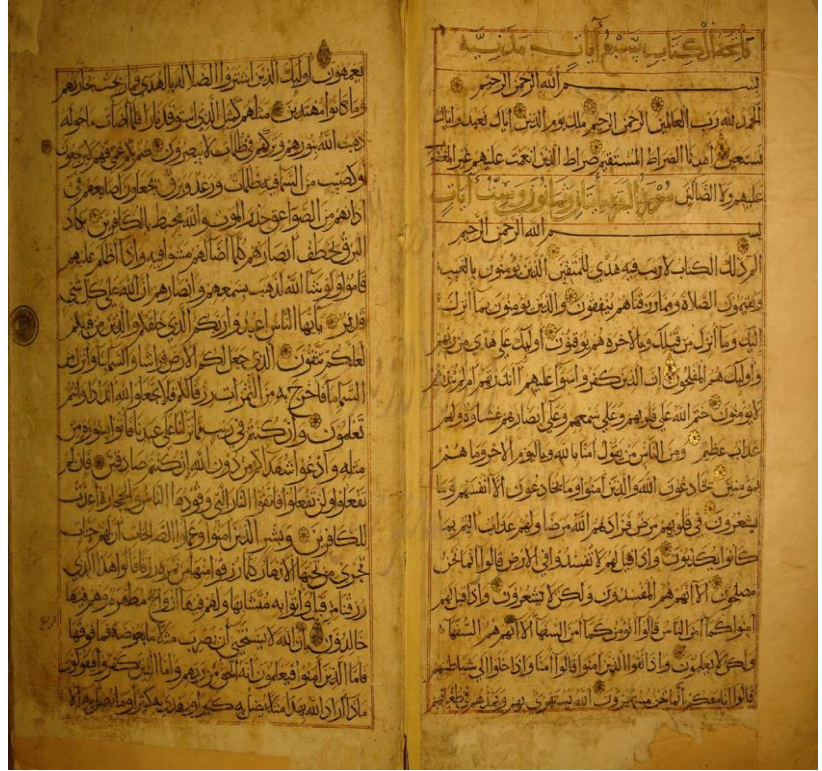 فاتحة الكتاب سبع آيات مدنية
بسم الله الرحمن الرحيم
الحمد لله رب العالمين الرحمن الرحيم ملك يوم الدين اياك نعبد واياك
نستعين اهدنا الصراط المستقيم صراط الذين انعمت عليهم غير المغضوب
عليهم ولا الضالين سورة البقرة مأتان وثمانون وست آيات
بسم الله الرحمن الرحيم
الم ذلك الكتاب لا ريب فيه هدى للمتقين الذين يؤمنون بالغيب
ويقيمون الصلاة ومما رزقناهم ينفقون والذين يؤمنون بما انزل
اليك وما انزل من قبلك وبالاخرة هم يوقنون اوليك على هدى من ربهم
واوليك هم المفلحون ان الذين كفروا سوا عليهم اانذرتهم ام لم تنذرهم
لا يومنون ختم الله على قلوبهم وعلى سمعهم وعلى ابصارهم غشاوة ولهم
عذاب عظيم ومن الناس من يقول امنا بالله وباليوم الاخر وما هم
بمومنين يخادعون الله والذين امنوا وما يخادعون الا انفسهم وما
يشعرون في قلوبهم مرض فزادهم الله مرضا ولهم عذاب اليم بما
كانوا يكذبون واذا قيل لهم لا تفسدوا في الارض قالوا انما نحن
مصلحون الا انهم هم المفسدون ولكن لا يشعرون واذا قيل لهم
امنوا كما امن الناس قالوا انومن كما امن السفها الا انهم هم السفها
ولكن لا يعلمون واذا لقوا الذين امنوا قالوا امنا واذا خلوا الى شياطينهم
قالوا انا معكم انما نحن مستهزون الله يستهزى بهم ويمدهم في طغيانهم
يعمهون اوليك الذين اشتروا الضلالة بالهدى فما ربحت تجارتهم
وما كانوا مهتدين مثلهم كمثل الذي استوقد نارا فلما اضات ما حوله
ذهب الله بنورهم وتركهم في ظلمات لا يبصرون صم بكم عمي فهم لا يرجعون
او كصيب من السما فيه ظلمات ورعد وبرق يجعلون اصابعهم في
اذانهم من الصواعق حذر الموت والله محيط بالكافرين يكاد
البرق يخطف ابصارهم كلما اضا لهم مشوا فيه واذا اظلم عليهم
قاموا ولو شا الله لذهب بسمعهم وابصارهم ان الله على كل شي
قدير يايها الناس اعبدوا ربكم الذي خلقكم والذين من قبلكم
لعلكم تتقون الذي جعل لكم الارض فراشا والسما بنا وانزل من
السما ما فاخرج به من الثمرات رزقا لكم فلا تجعلوا لله اندادا وانتم
تعلمون وان كنتم في ريب مما نزلنا على عبدنا فاتوا بسورة من
مثله وادعوا شهداكم من دون الله ان كنتم صادقين فان لم
تفعلوا ولن تفعلوا فاتقوا النار التي وقودها الناس والحجارة اعدت
للكافرين وبشر الذين امنوا وعملوا الصالحات ان لهم جنات
تجري من تحتها الانهار كلما رزقوا منها من ثمرة رزقا قالوا هذا الذي
رزقنا من قبل واتوا به متشابها ولهم فيها ازواج مطهرة وهم فيها
خالدون ان الله لا يستحيي ان يضرب مثلا ما بعوضة فما فوقها
فاما الذين امنوا فيعلمون انه الحق من ربهم واما الذين كفروا فيقولون
ماذا اراد الله بهذا مثلا يضل به كثيرا ويهدي به كثيرا وما يضل به الا